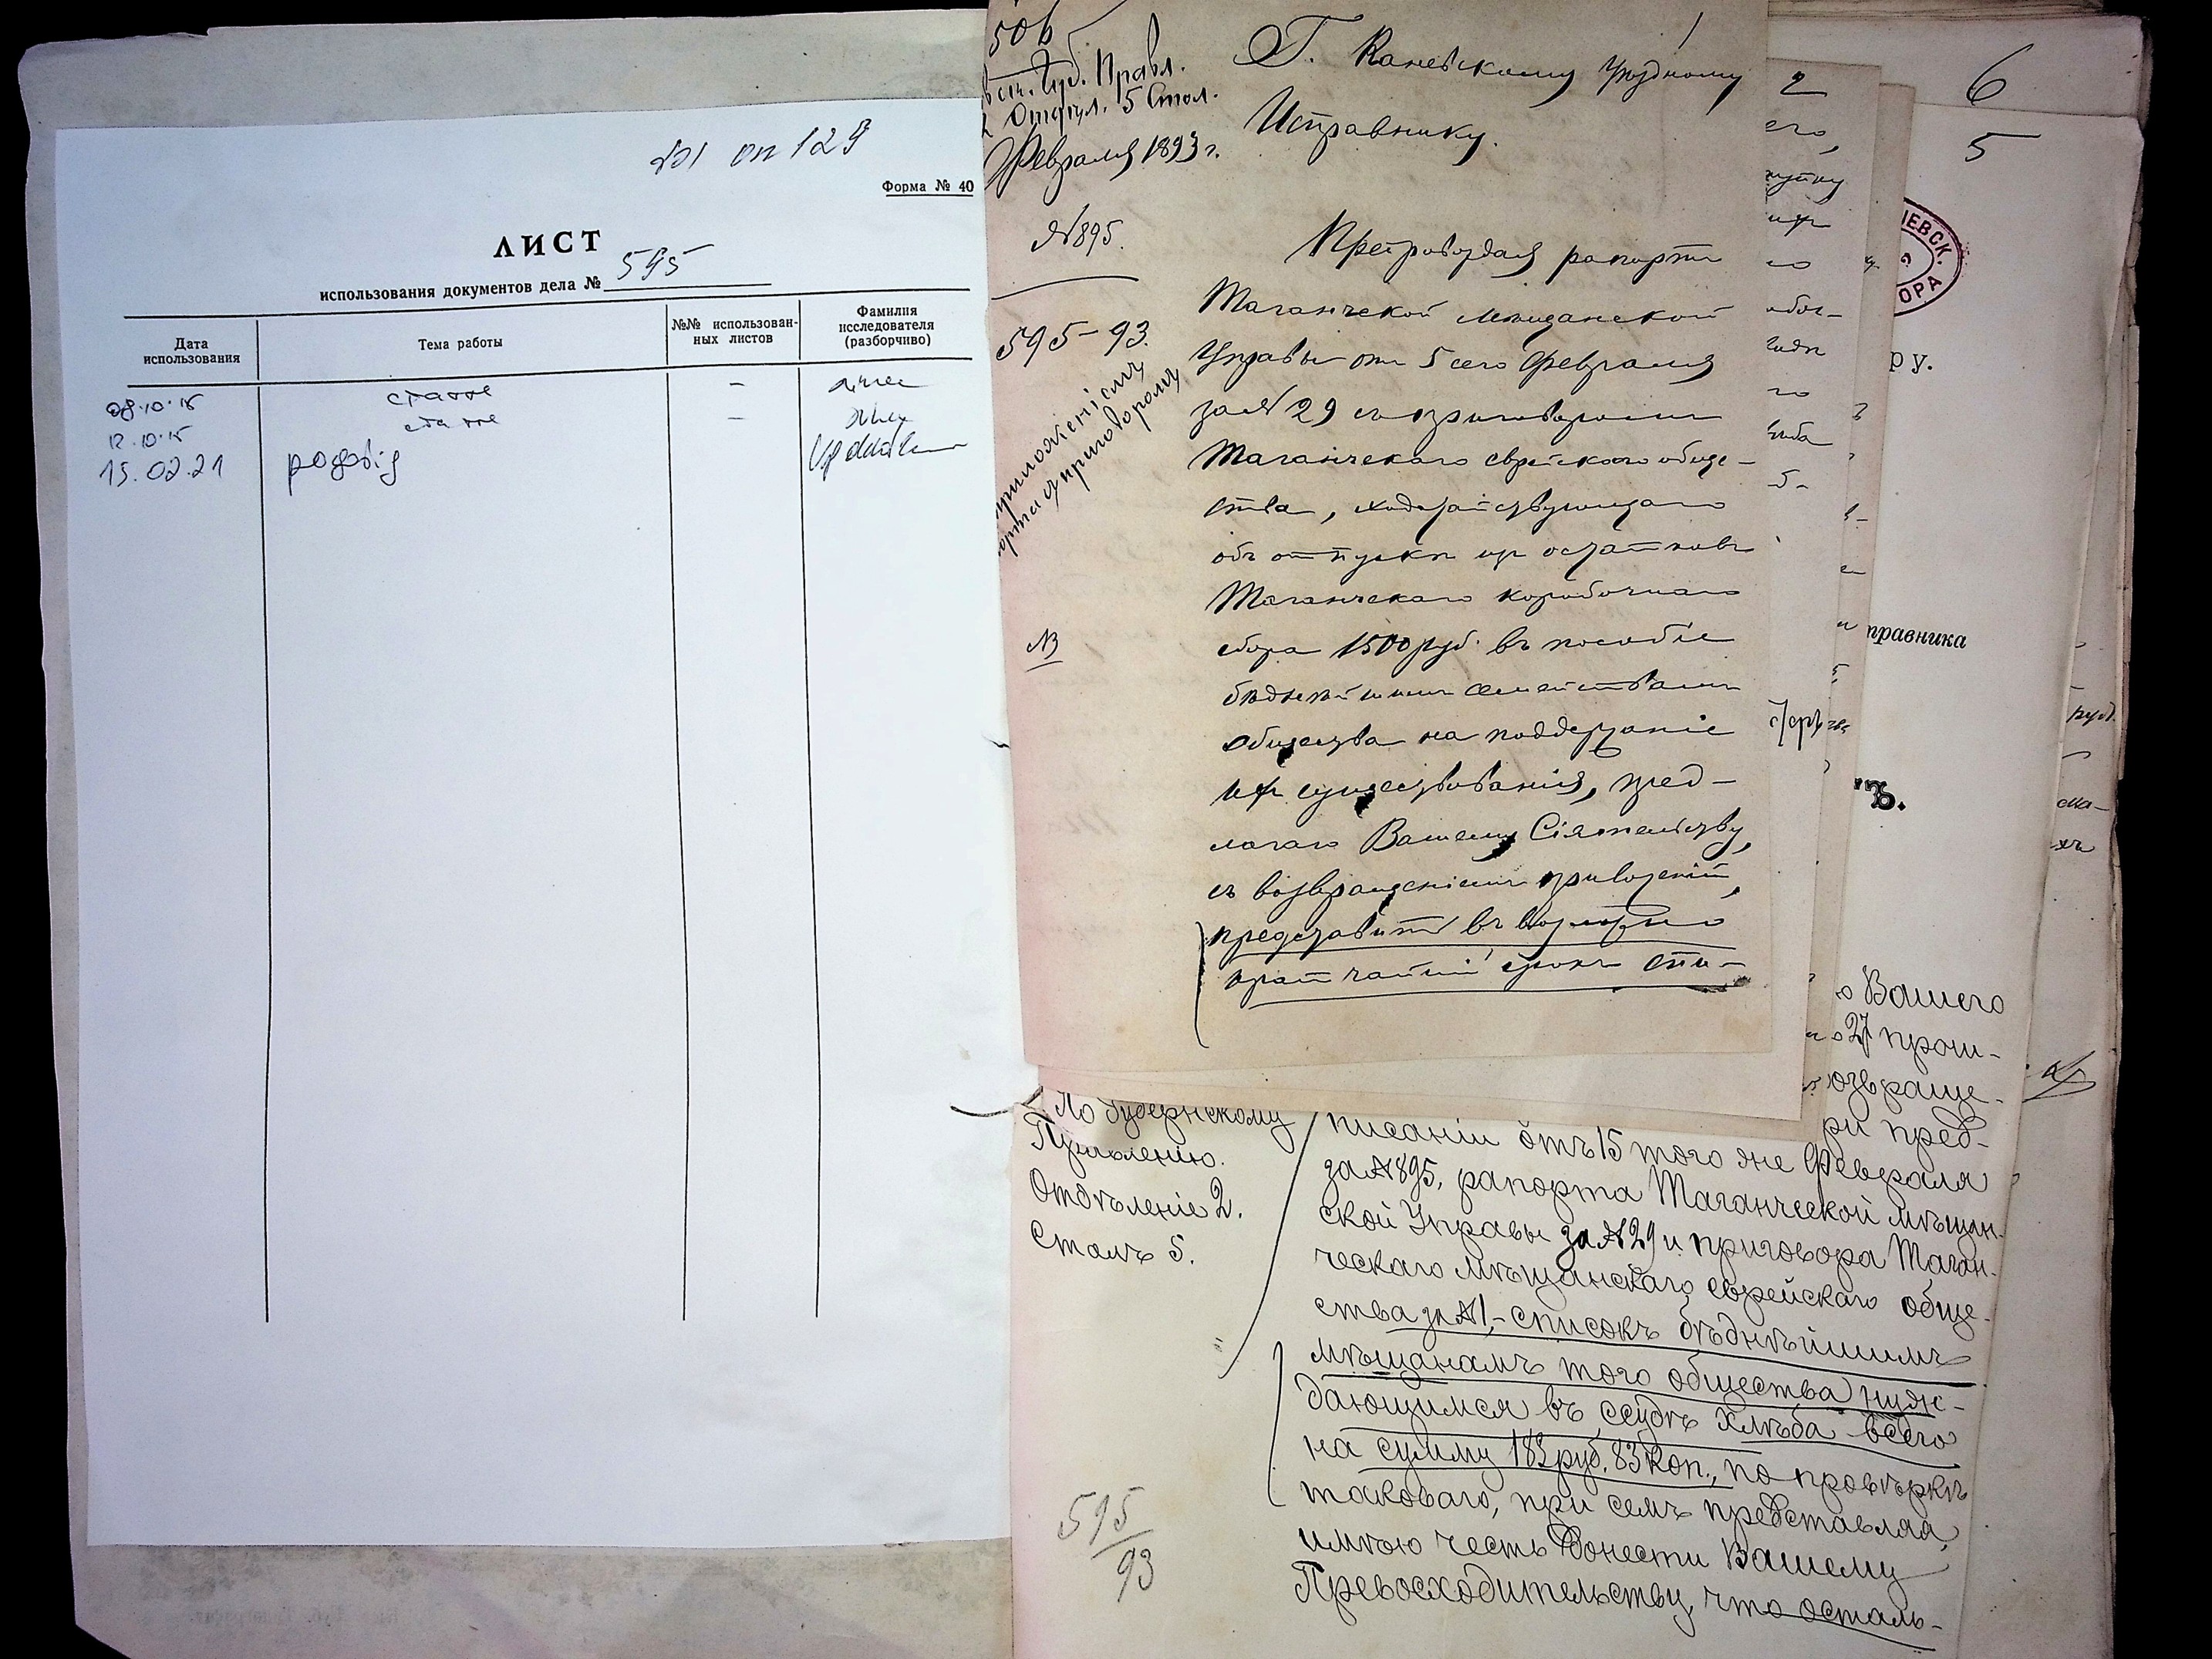 оп 129
Форма № 40
ЛИСТ
использования документов дела № 595
Дата использования
Тема работы
№№ использован-
ных листов
Фамилия
исследователя
(разборчиво)
08.10.15 статте -
12.10.15 статте -
15.02.21 родовід
506
Губ. Правл.
5 Стол.
Февраля 1893 г.
№ 895.
595-93.
приложеніемъ
рапорта съ приговоромъ
NB
Г. Каневскому Уѣздному
Исправнику.
Препровождая рапортъ
Таганчской мѣщанской
Управы отъ 5 сего Февраля
за № 29 съ приговоромъ
Таганчскаго еврейскаго обще-
ства, ходатайствующаго
объ отпускѣ изъ остатковъ
Таганчскаго коробочнаго
сбора 1500 руб. въ пособіе
бѣднѣйшимъ семействамъ
общества на поддержаніе
ихъ существованія, пред-
лагаю Вашему Сіятельству,
съ возвращеніемъ приложеній,
представить въ возможно
кратчайшій срокъ спи-
2
его,
6
5
ру.
правника
ъ.
руб.
Вашего
27 прош-
озвраще-
ри пред-
По Губернскому
Правленію.
Отдѣленіе 2.
Столъ 5.
595
93
писаніи отъ 15 того же Февраля
за № 895, рапорта Таганчской мѣщан-
ской Управы за № 29 и приговора Таган-
ческаго мѣщанскаго еврейскаго обще-
ства за № 1,- списокъ бѣднѣйшимъ
мѣщанамъ того общества нуж-
дающимся въ ссудѣ хлѣба всего
на сумму 183 руб. 83 коп., по провѣркѣ
таковаго, при семъ представляя,
имѣю честь донести Вашему
Превосходительству, что осталь-